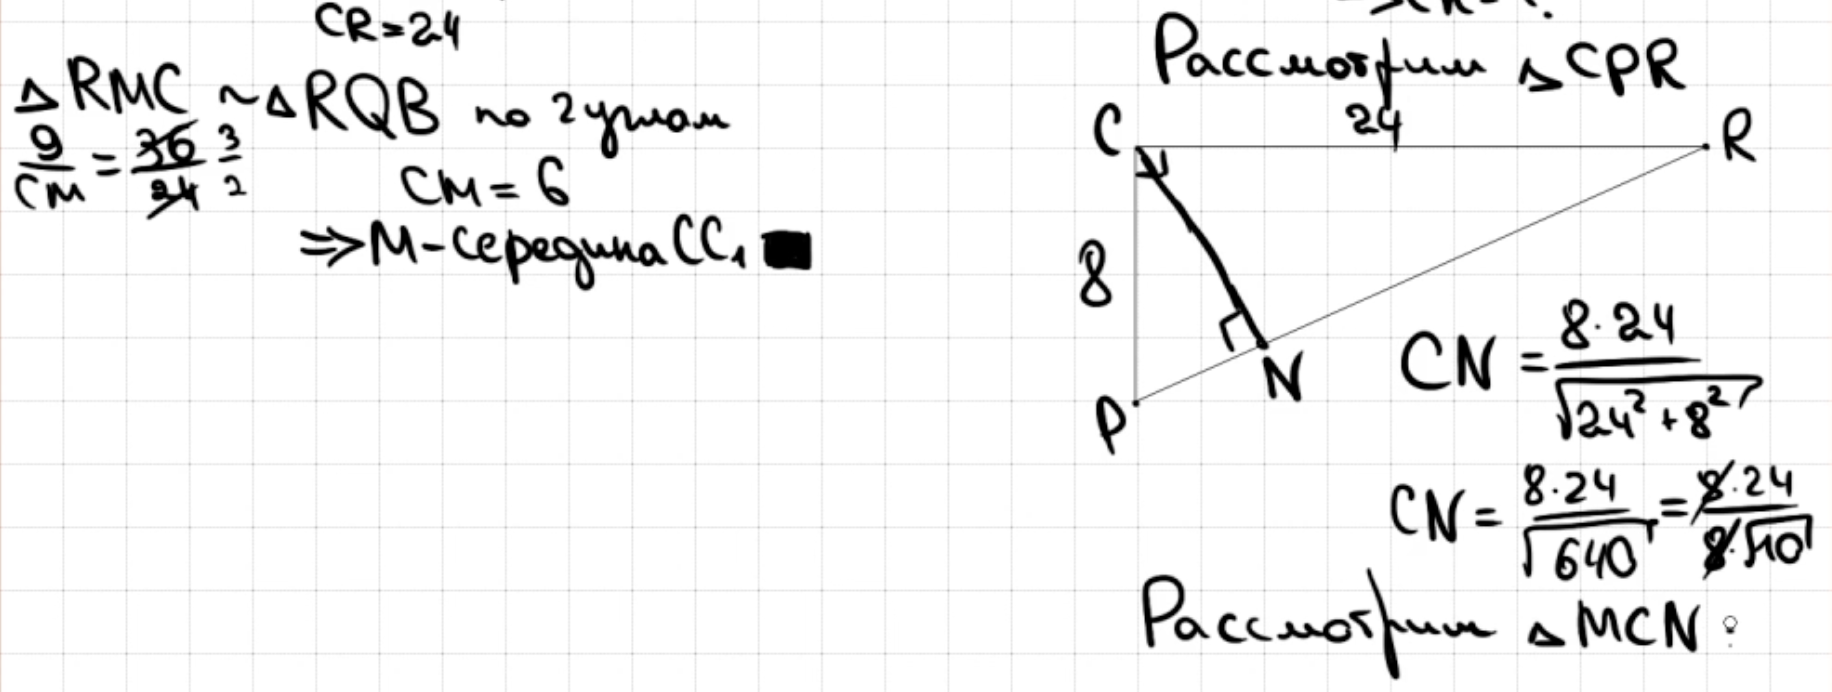 CR=24
△RMC ~ △RQB по 2 углам
9/CM = 36/24 3/2
CM = 6
⇒ M-середина CC₁ ■
Рассмотрим △CPR
C 24 R
8
N
P
CN = 8·24/√(24²+8²)
CN = 8·24/√640 = 8·24/8·√10
Рассмотрим △MCN: